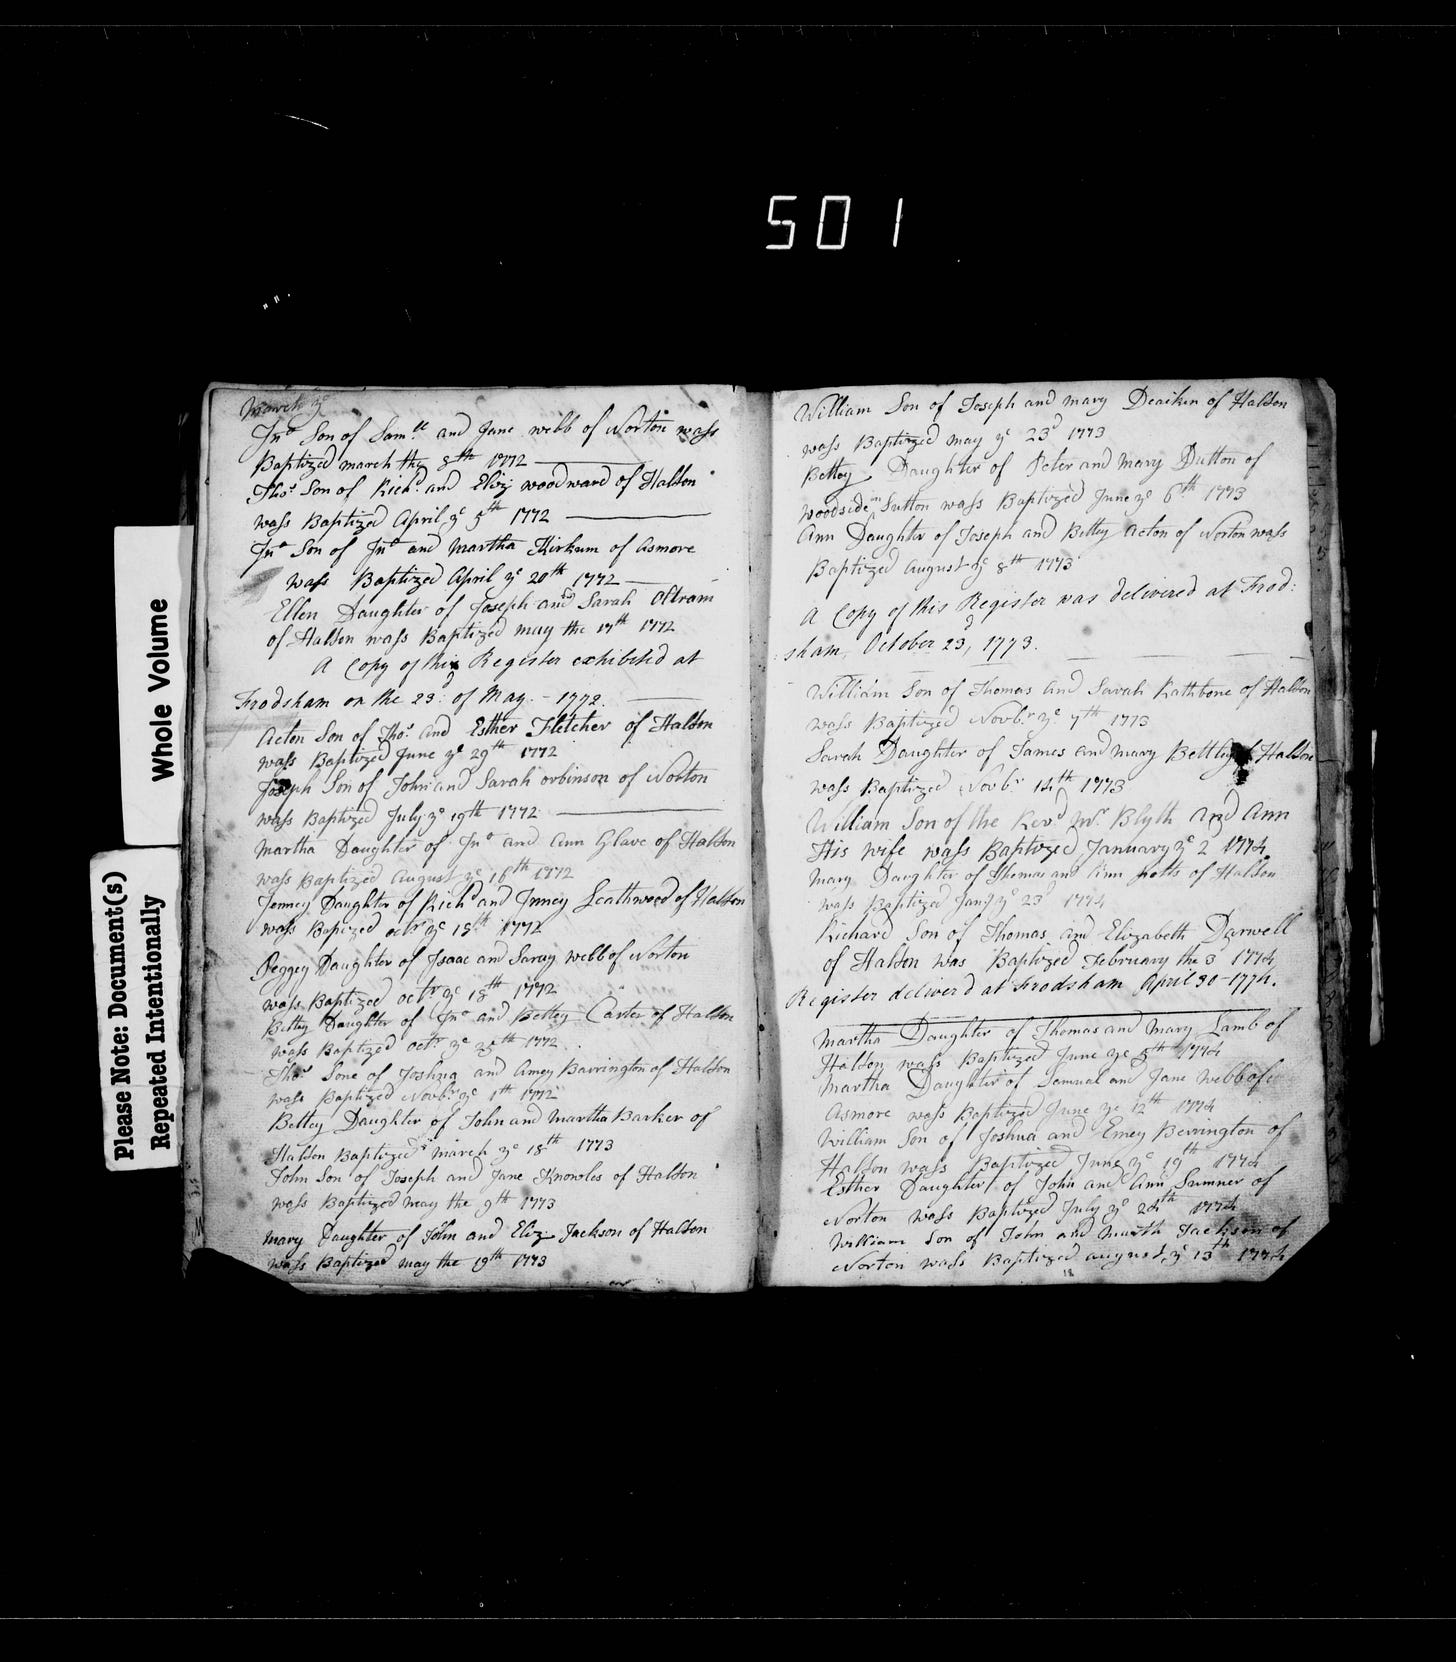 501
Whole Volume
Please Note: Document(s)
Repeated Intentionally
March ye
Jno Son of Sam.ll and Jane webb of Norton wass
Baptized march the 8th 1772
Thos Son of Richd and Eliz woodward of Halton
wass Baptized April ye 5th 1772
Jno Son of Jno and Martha Kirkum of Asmore
wass Baptized April ye 20th 1772
Ellen Daughter of Joseph and Sarah Oltram
of Halton wass Baptized may the 17th 1772
A Copy of this Register exhibited at
Frodsham on the 23d of May - 1772.
Acton Son of Thos and Esther Fletcher of Halton
wass Baptized June ye 29th 1772
Joseph Son of John and Sarah orbinson of Norton
wass Baptized July ye 19th 1772
Martha Daughter of Jno and Ann Glave of Halton
wass Baptized August ye 16th 1772
Jenney Daughter of Richd and Jnney Leathwood of Halton
wass Baptized octr ye 18th 1772
Peggey Daughter of Isaac and Saray webb of Norton
wass Baptized octr ye 18th 1772
Bettey Daughter of Jno and Bettey Carter of Halton
wass Baptized octr ye 25th 1772
Thos Sone of Joshua and Amey Barrington of Halton
wass Baptized Novbr ye 1th 1772
Bettey Daughter of John and Martha Barker of
Halton Baptized march ye 18th 1773
John Son of Joseph and Jane Knowles of Halton
wass Baptized may the 9th 1773
mary Daughter of John and Eliz Jackson of Halton
wass Baptized may the 19th 1773
William Son of Joseph and mary Deaiken of Halton
wass Baptized may ye 23d 1773
Bettey Daughter of Peter and mary Dutton of
woodside in Sutton wass Baptized June ye 6th 1773
Ann Daughter of Joseph and Bettey Acton of Norton wass
Baptized August ye 8th 1773
A Copy of this Register was delivered at Frod:
sham, October 23d, 1773.
William Son of Thomas and Sarah Rathbone of Halton
wass Baptized Novbr ye 7th 1773
Sarah Daughter of James and mary Bettley of Halton
wass Baptized Novbr 14th 1773
William Son of the Revd Mr Blyth and Ann
His wife wass Baptized January ye 2 1774
Mary Daughter of Thomas and Ann potts of Halton
wass Baptized Janry ye 23d 1774
Richard Son of Thomas and Elizabeth Darwell
of Halton was Baptized February the 3 1774
Register deliver'd at Frodsham April 30 - 1774.
Martha Daughter of Thomas and Mary Lamb of
Halton wass Baptized June ye 5th 1774
Martha Daughter of Samual and Jane webb of
Asmore wass Baptized June ye 12th 1774
William Son of Joshua and Emey Berrington of
Halton wass Baptized June ye 19th 1774
Esther Daughter of John and Ann Sumner of
Norton wass Baptized July ye 24th 1774
William Son of John and Jackson of
Norton wass Baptized august ye 13th 1774